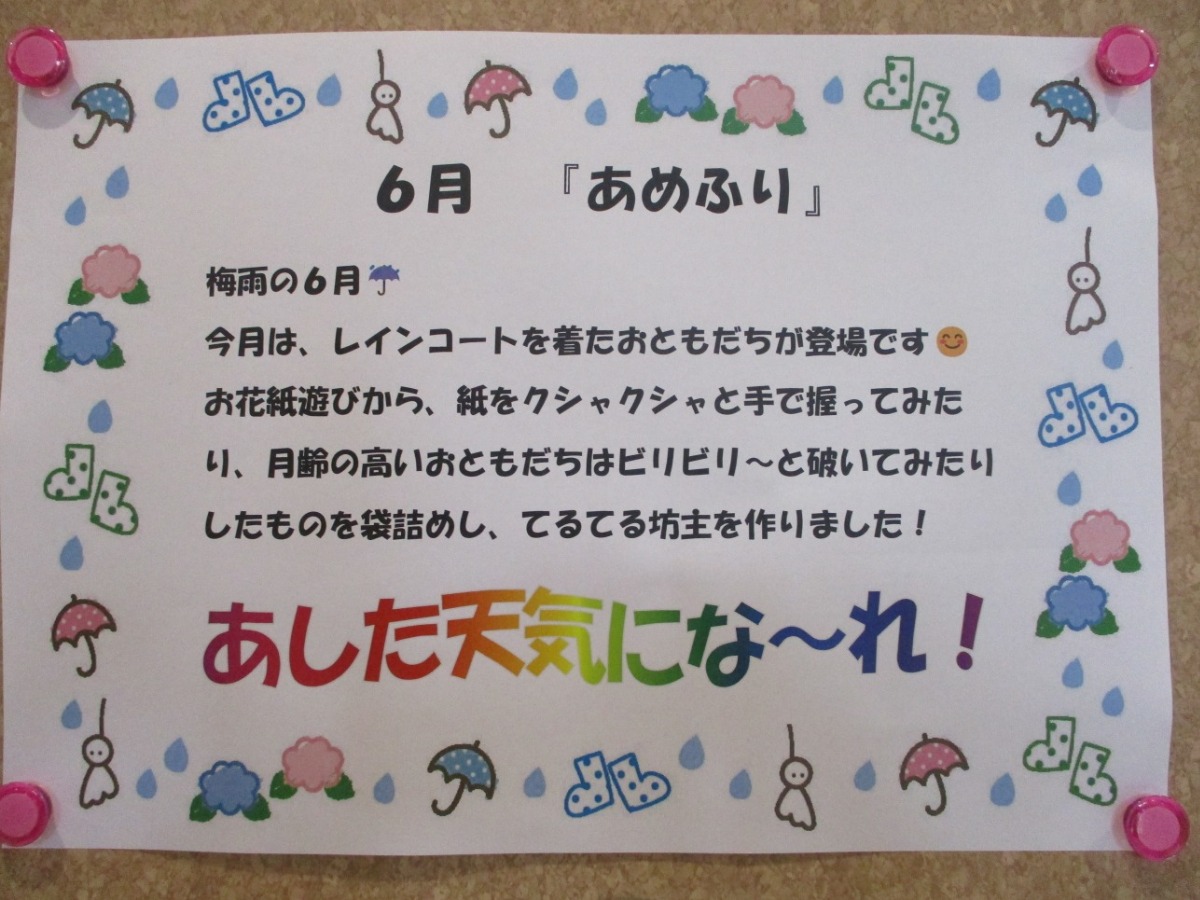 6月　『あめふり』
梅雨の6月☔
今月は、レインコートを着たおともだちが登場です😊
お花紙遊びから、紙をクシャクシャと手で握ってみた
り、月齢の高いおともだちはビリビリ～と破いてみたり
したものを袋詰めし、てるてる坊主を作りました！
あした天気にな～れ！